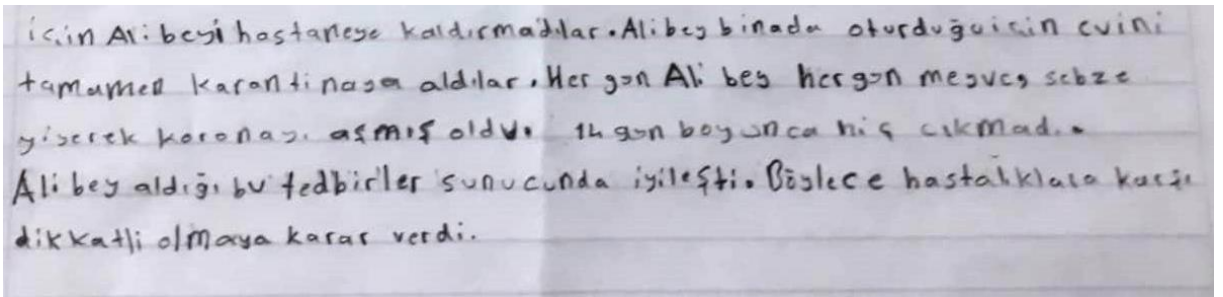 için Ali beyi hastaneye kaldırmadılar. Ali bey binada oturduğu için evini
tamamen karantinaya aldılar. Her gün Ali bey hergün meyve, sebze
yiyerek koronayı aşmış oldu. 14 gün boyunca hiç çıkmadı.
Ali bey aldığı bu tedbirler sunucunda iyileşti. Böylece hastalıklara karşı
dikkatli olmaya karar verdi.